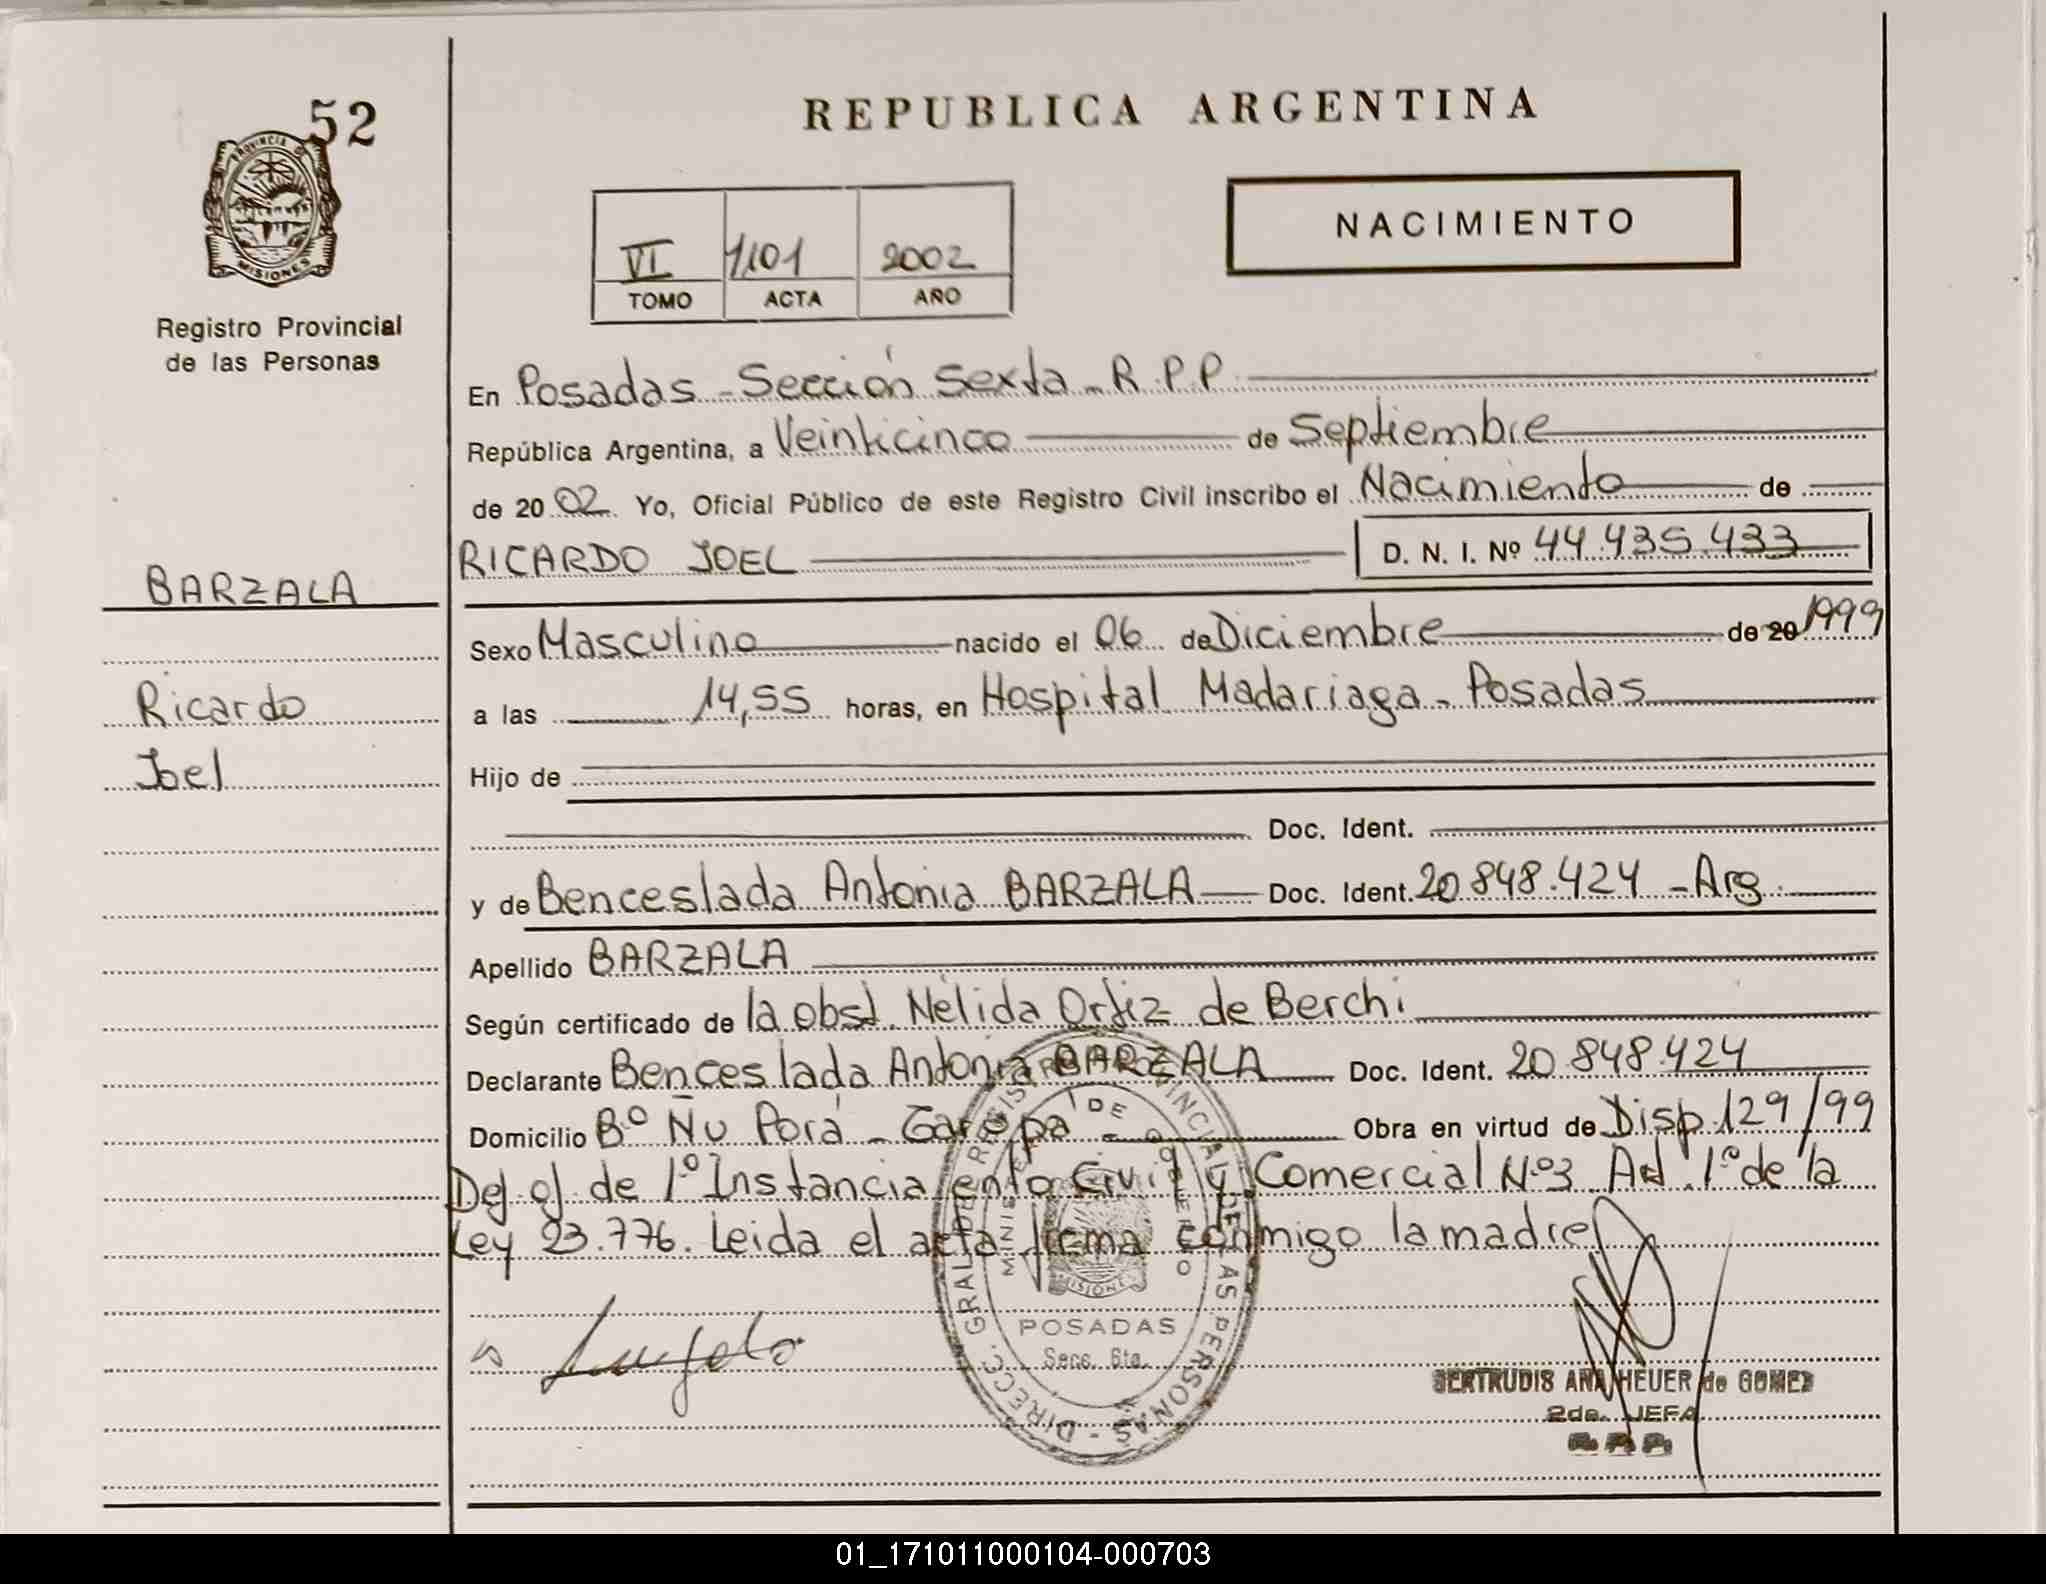 52
PROVINCIA DE
MISIONES
Registro Provincial
de las Personas
REPUBLICA ARGENTINA
VI 1101 2002
TOMO ACTA AÑO
NACIMIENTO
En Posadas - Sección Sexta - R.P.P.
República Argentina, a Veinticinco de Septiembre
de 2002 Yo, Oficial Público de este Registro Civil inscribo el Nacimiento de
RICARDO JOEL D. N. I. Nº 44.435.433
BARZALA
Ricardo
Joel
Sexo Masculino nacido el 06 de Diciembre de 20 1999
a las 14,55 horas, en Hospital Madariaga - Posadas
Hijo de
Doc. Ident.
y de Benceslada Antonia BARZALA Doc. Ident. 20.848.424 - Arg.
Apellido BARZALA
Según certificado de la obst. Nélida Ortiz de Berchi
Declarante Benceslada Antonia BARZALA Doc. Ident. 20.848.424
Domicilio Bº Ñu Porá - Garupa - Obra en virtud de Disp. 129/99
Def. of. de 1º Instancia en lo Civil y Comercial Nº3 Ad. 1º de la
Ley 23.776. Leida el acta firma conmigo la madre
DIRECC. GRAL. DE REGISTRO PROVINCIAL DE LAS PERSONAS -
MINISTERIO DE GOBIERNO
MISIONES
POSADAS
Secc. 6ta.
GERTRUDIS ANA HEUER de GOMEZ
2da. JEFA
R. P. P.
01_171011000104-000703